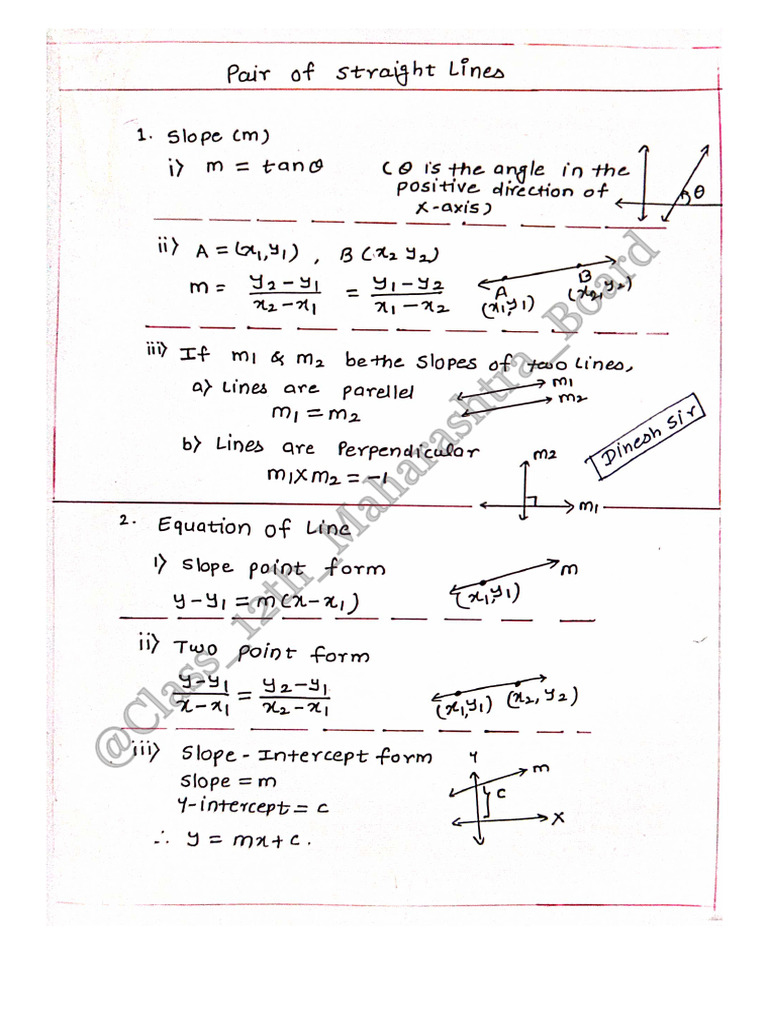 Pair of Straight Lines
1. Slope (m)
i) m = tanθ (θ is the angle in the
positive direction of
X-axis)
θ
ii) A = (x₁, y₁) , B (x₂ y₂)
m = (y₂ - y₁)/(x₂ - x₁) = (y₁ - y₂)/(x₁ - x₂)
A (x₁, y₁)
B (x₂, y₂)
iii) If m₁ & m₂ be the slopes of two lines,
a) Lines are parellel
m₁ = m₂
m₁
m₂
b) Lines are Perpendicular
m₁ x m₂ = -1
m₂
m₁
Dinesh Sir
2. Equation of Line
i) Slope point form
y - y₁ = m (x - x₁)
m
(x₁, y₁)
ii) Two point form
(y - y₁)/(x - x₁) = (y₂ - y₁)/(x₂ - x₁)
(x₁, y₁) (x₂, y₂)
iii) Slope - Intercept form
Slope = m
Y-intercept = c
∴ y = mx + c.
Y
m
c
X
@Class_12th_Maharashtra_Board